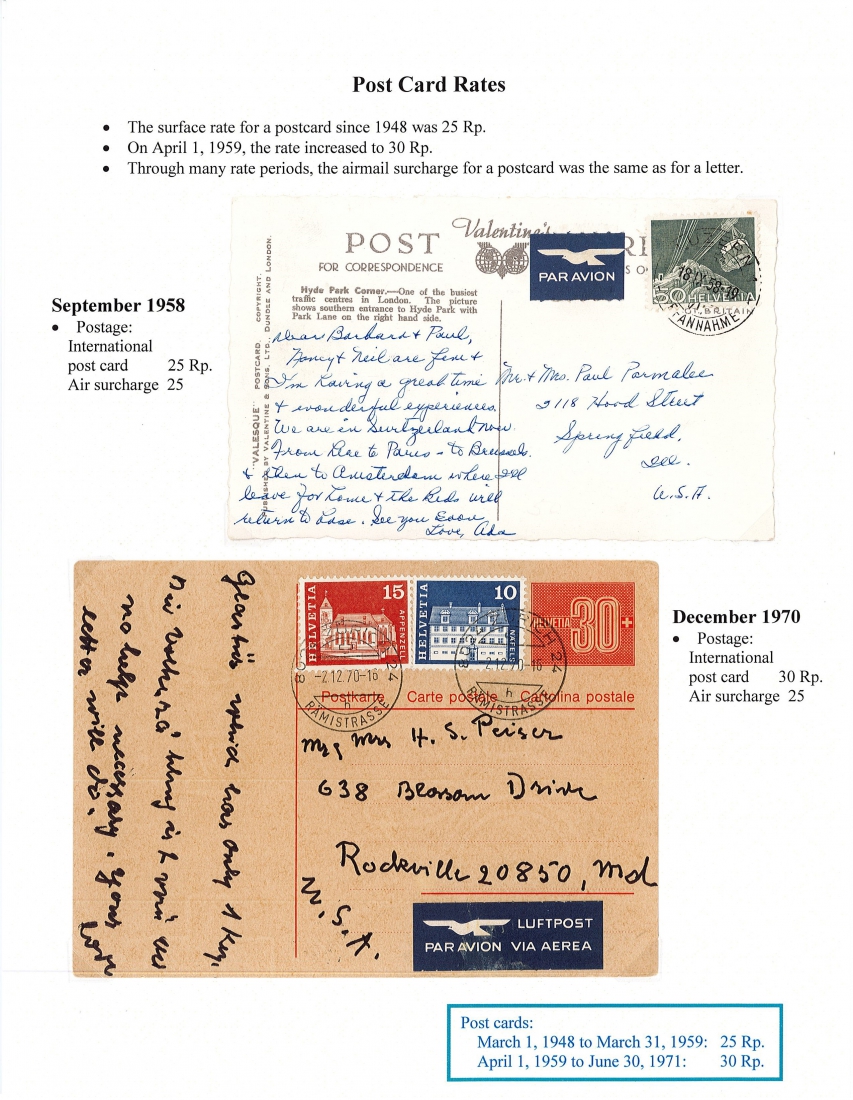 Post Card Rates
• The surface rate for a postcard since 1948 was 25 Rp.
• On April 1, 1959, the rate increased to 30 Rp.
• Through many rate periods, the airmail surcharge for a postcard was the same as for a letter.
September 1958
• Postage:
International
post card 25 Rp.
Air surcharge 25
POST
Valentine's
FOR CORRESPONDENCE
PAR AVION
50 HELVETIA
ANNAHME
BRITAIN
"VALESQUE" POSTCARD. COPYRIGHT.
PUBLISHED BY VALENTINE & SONS, LTD., DUNDEE AND LONDON.
Hyde Park Corner.—One of the busiest
traffic centres in London. The picture
shows southern entrance to Hyde Park with
Park Lane on the right hand side.
Dear Barbara & Paul,
Nancy & Neil are fine &
I'm having a great time
& wonderful experiences.
We are in Switzerland now.
From here to Paris - to Brussels.
& then to Amsterdam where I'll
leave for home & the kids will
return to base. See you soon
Love, Ada
Mr. & Mrs. Paul Parmalee
2118 Hood Street
Springfield,
Ill.
U.S.A.
December 1970
• Postage:
International
post card 30 Rp.
Air surcharge 25
HELVETIA 15 APPENZELL
HELVETIA 10 NÄFELS
HELVETIA 30 +
-2.12.70-16
RÄMISTRASSE
2.12.70-16
RÄMISTRASSE
Postkarte Carte postale Cartolina postale
only 1 kg.
no help necessary. Your
letter will do.
Mrs H. S. Peiser
638 Blossom Drive
Rockville 20850, Md
U.S.A.
LUFTPOST
PAR AVION VIA AEREA
Post cards:
March 1, 1948 to March 31, 1959: 25 Rp.
April 1, 1959 to June 30, 1971: 30 Rp.